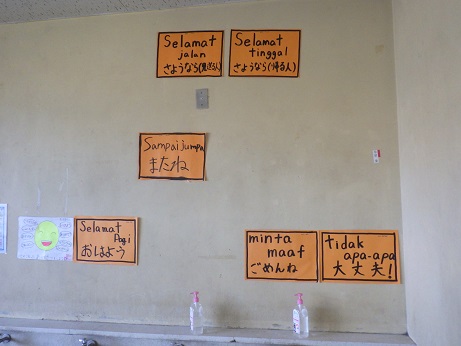 Selamat
jalan
さようなら(見送る人)
Selamat
tinggal
さようなら(帰る人)
Sampai jumpa
またね
Selamat
Pagi
おはよう
minta
maaf
ごめんね
tidak
apa-apa
大丈夫!